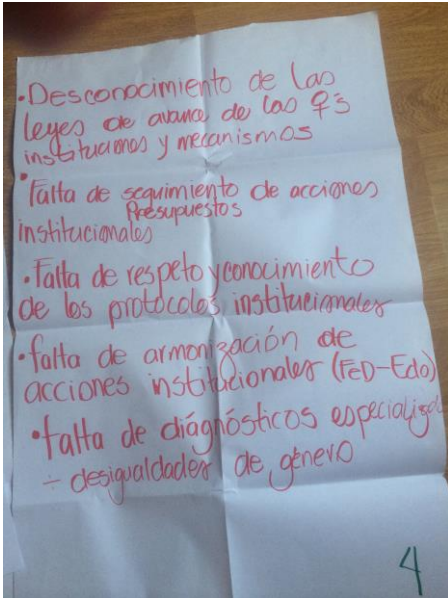 •Desconocimiento de las
leyes de avance de las ♀s
instituciones y mecanismos
•Falta de seguimiento de acciones
Presupuestos
institucionales
•Falta de respeto y conocimiento
de los protocolos institucionales
•falta de armonización de
acciones institucionales (FeD-Edo)
•falta de diagnósticos especializa
÷ desigualdades de género
4